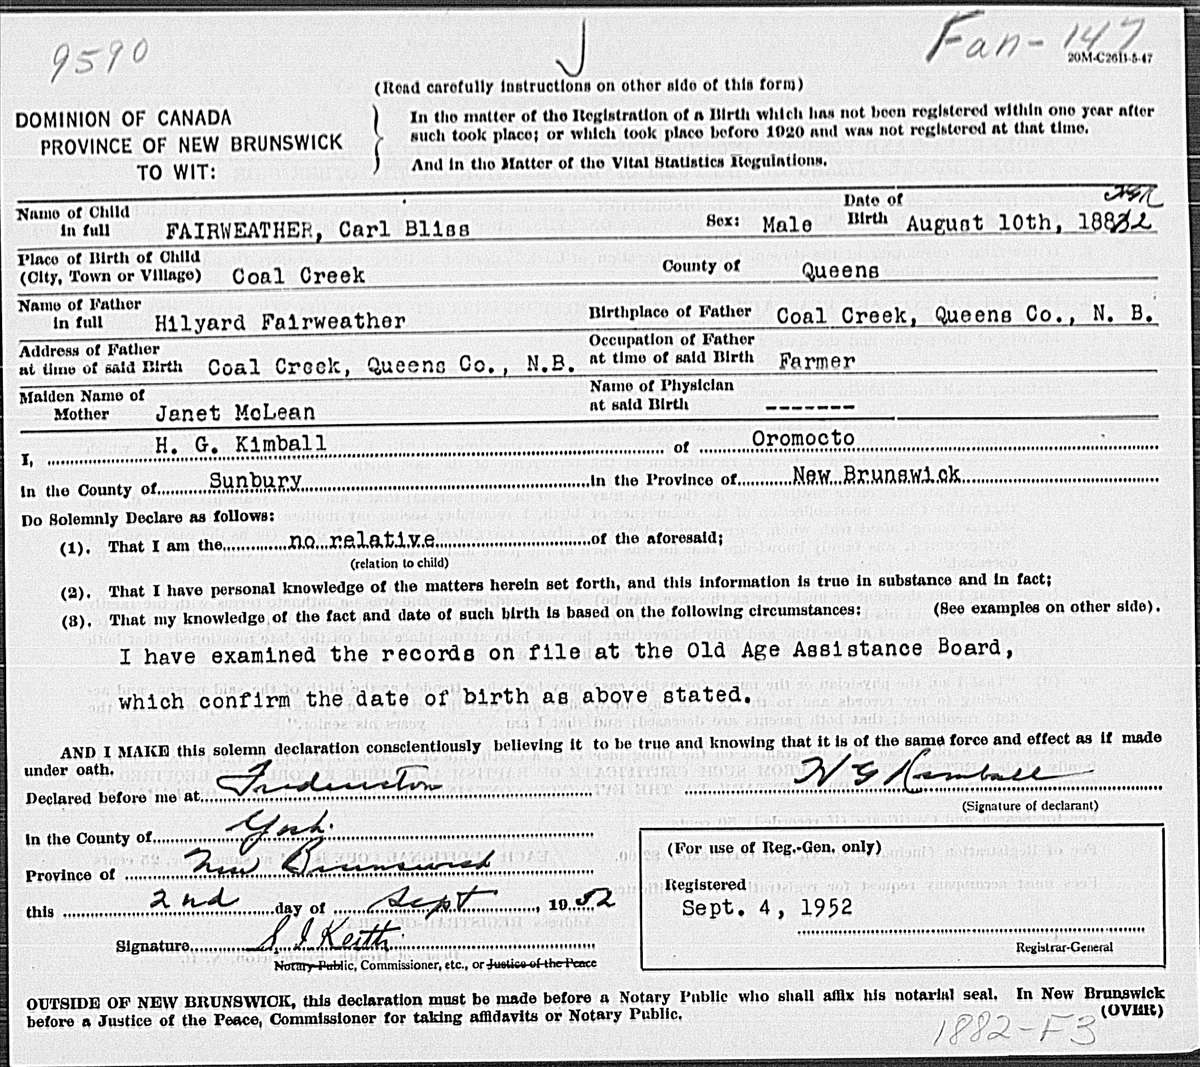 9590
Fan-147
20M-C26B-5-47
(Read carefully instructions on other side of this form)
DOMINION OF CANADA
PROVINCE OF NEW BRUNSWICK
TO WIT:
In the matter of the Registration of a Birth which has not been registered within one year after
such took place; or which took place before 1920 and was not registered at that time.
And in the Matter of the Vital Statistics Regulations.
Name of Child in full FAIRWEATHER, Carl Bliss Sex: Male Date of Birth August 10th, 1882
Place of Birth of Child (City, Town or Village) Coal Creek County of Queens
Name of Father in full Hilyard Fairweather Birthplace of Father Coal Creek, Queens Co., N. B.
Address of Father at time of said Birth Coal Creek, Queens Co., N.B. Occupation of Father at time of said Birth Farmer
Maiden Name of Mother Janet McLean Name of Physician at said Birth -------
I, H. G. Kimball of Oromocto
in the County of Sunbury in the Province of New Brunswick
Do Solemnly Declare as follows:
(1). That I am the no relative of the aforesaid;
(relation to child)
(2). That I have personal knowledge of the matters herein set forth, and this information is true in substance and in fact;
(3). That my knowledge of the fact and date of such birth is based on the following circumstances: (See examples on other side).
I have examined the records on file at the Old Age Assistance Board,
which confirm the date of birth as above stated.
AND I MAKE this solemn declaration conscientiously believing it to be true and knowing that it is of the same force and effect as if made
under oath.
Declared before me at Fredericton H G Kimball
(Signature of declarant)
in the County of York
Province of New Brunswick
this 2nd day of Sept, 1952
Signature S. I. Keith
Notary Public, Commissioner, etc., or Justice of the Peace
(For use of Reg.-Gen. only)
Registered
Sept. 4, 1952
Registrar-General
OUTSIDE OF NEW BRUNSWICK, this declaration must be made before a Notary Public who shall affix his notarial seal. In New Brunswick
before a Justice of the Peace, Commissioner for taking affidavits or Notary Public. (OVER)
1882-F3